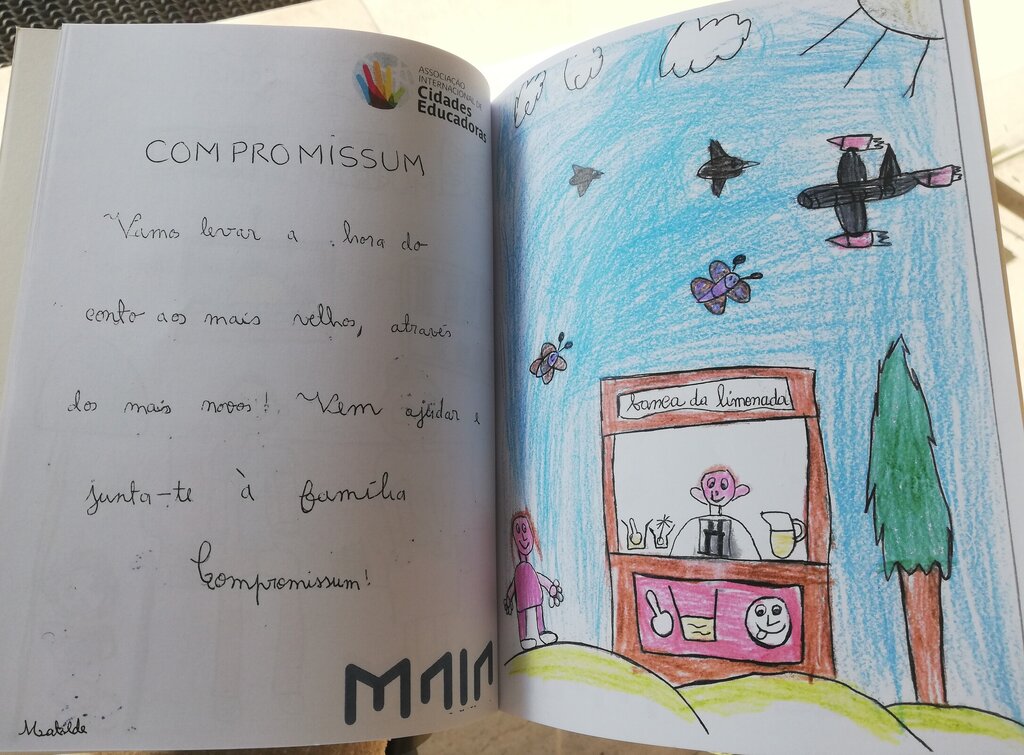 ASSOCIAÇÃO
INTERNACIONAL DE
Cidades
Educadoras
COMPROMISSUM
Vamos levar a hora do
conto aos mais velhos, através
dos mais novos! Vem ajudar e
junta-te à família
Compromissum!
MAIA
Matilde
banca da limonada
H